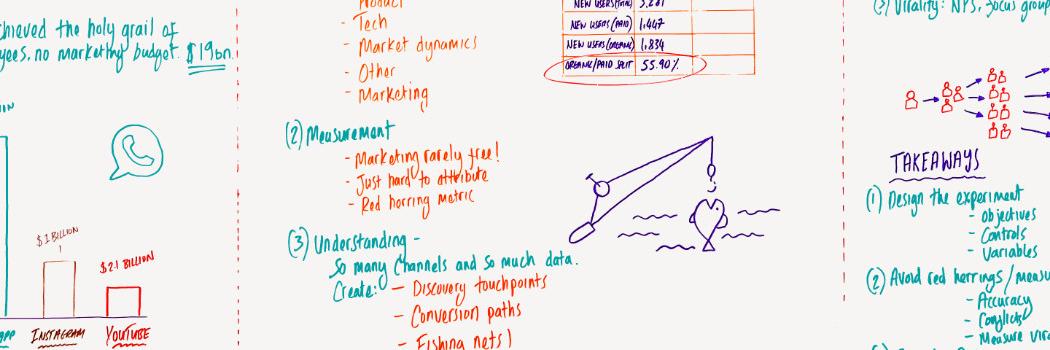 chieved the holy grail of
yees, no marketing budget. $19bn.
$1 BILLION
$2.1 BILLION
APP INSTAGRAM YOUTUBE
Product
- Tech
- Market dynamics
- Other
- Marketing
NEW USERS (PAID) 1,447
NEW USERS (ORGANIC) 1,834
ORGANIC/PAID SPLIT 55.90%
(2) Measurement
- Marketing rarely free!
- Just hard to attribute
- Red herring metric
(3) Understanding -
So many channels and so much data.
Create: - Discovery touchpoints
- Conversion paths
- Fishing nets)
(3) Virality: NPS, focus group
TAKEAWAYS
(1) Design the experiment
- Objectives
- Controls
- Variables
(2) Avoid red herrings/measu
- Accuracy
- Conflicts
- Measure vira